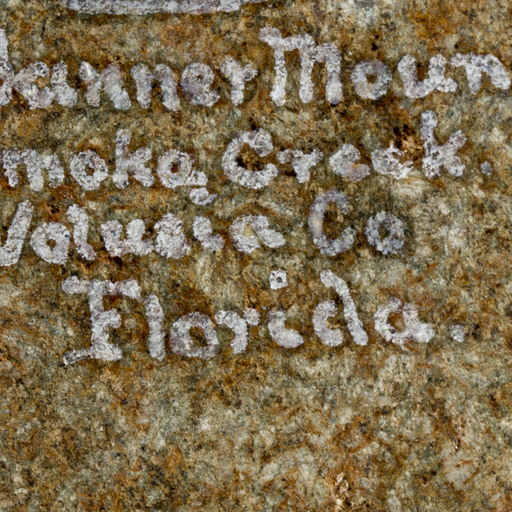 Tanner Moun
Tomoka Creek.
Volusia Co
Florida.